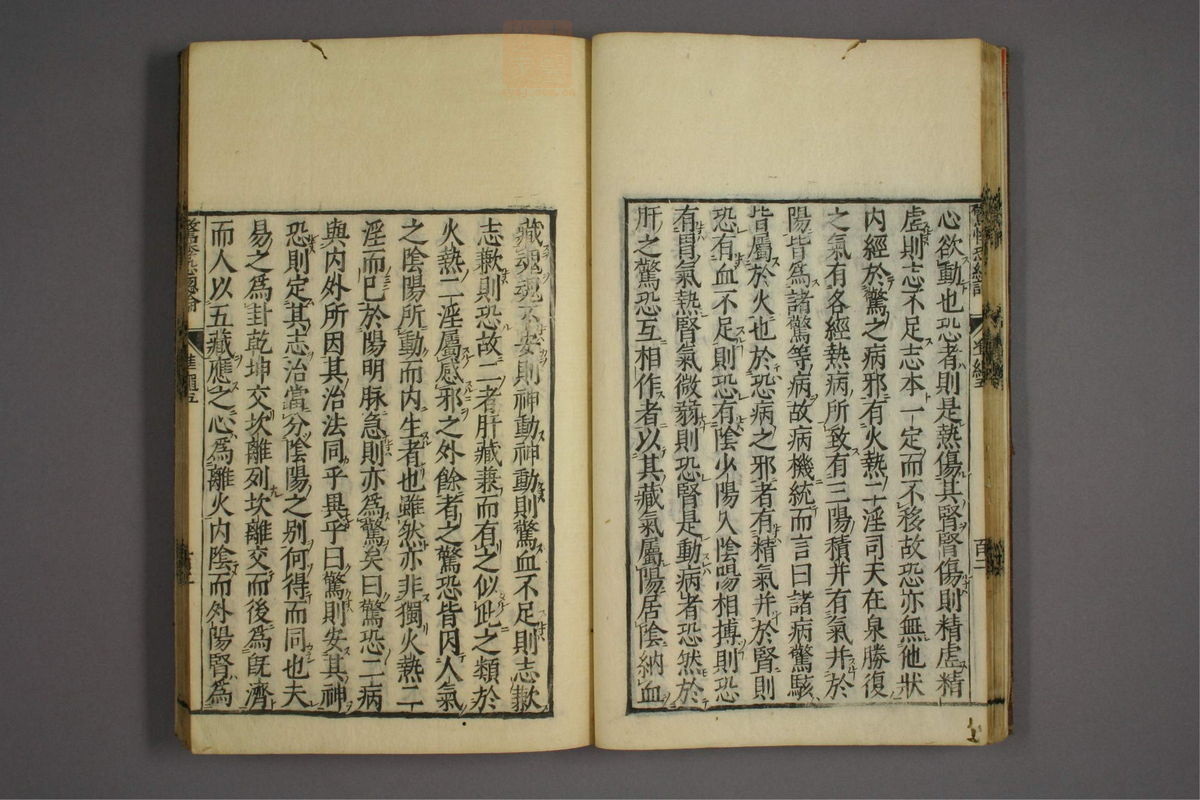 心欲動也恐者則是熱傷其腎腎傷則精虛精
虛則志不足志本一定而不移故恐亦無他狀
内經於驚之病邪有火熱二淫司天在泉勝復
之氣有各經熱病所致有三陽積并有氣并於
陽皆爲諸驚等病故病機統而言曰諸病驚駭
皆屬於火也於恐病之邪者有精氣并於腎則
恐有血不足則恐有陰少陽入陰陽相搏則恐
有胃氣熱腎氣微弱則恐腎是動病者恐然於
肝之驚恐互相作者以其藏氣屬陽居陰納血
藏魂魂不安則神動神動則驚血不足則志歉
志歉則恐故二者肝藏兼而有之似此之類於
火熱二淫屬感邪之外餘者之驚恐皆因人氣
之陰陽所動而内生者也雖然亦非獨火熱二
淫而巳於陽明脉急則亦爲驚矣曰驚恐二病
與内外所因其治法同乎異乎曰驚則安其神
恐則定其志治當分陰陽之別何得而同也夫
易之爲卦乾坤交坎離列坎離交而後爲既濟
而人以五藏應之心爲離火内陰而外陽腎爲